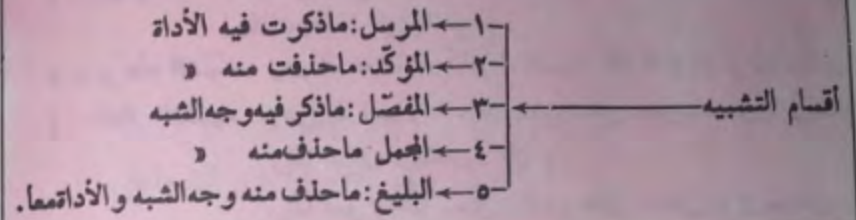 ١- المرسل: ماذكرت فيه الأداة
٢- المؤكّد: ماحذفت منه »
أقسام التشبيه
٣- المفصّل: ماذكر فيه وجه الشبه
٤- المجمل ماحذف منه »
٥- البليغ: ماحذف منه وجه الشبه و الأداة معاً.